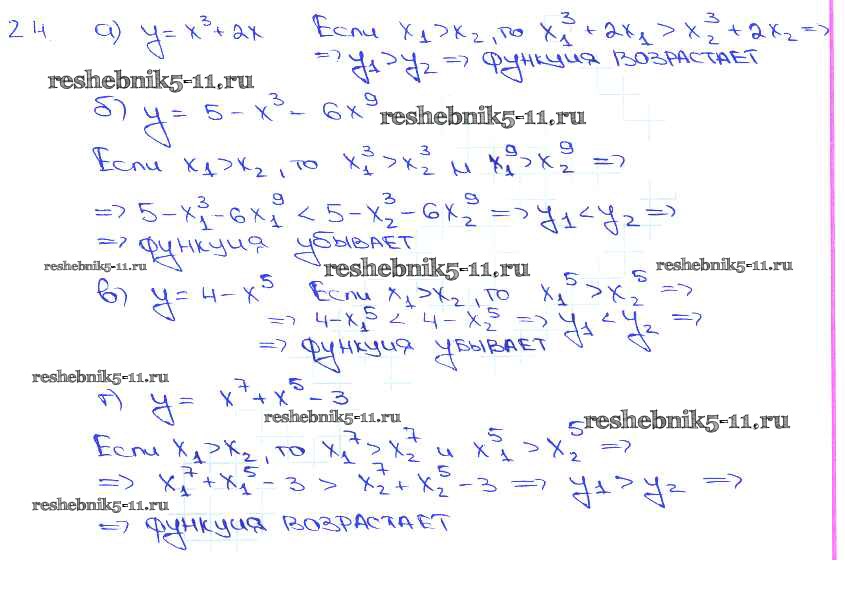 24. а) y = x³ + 2x Если x₁ > x₂, то x₁³ + 2x₁ > x₂³ + 2x₂ =>
=> y₁ > y₂ => функция возрастает
reshebnik5-11.ru
б) y = 5 - x³ - 6x⁹ reshebnik5-11.ru
Если x₁ > x₂, то x₁³ > x₂³ и x₁⁹ > x₂⁹ =>
=> 5 - x₁³ - 6x₁⁹ < 5 - x₂³ - 6x₂⁹ => y₁ < y₂ =>
=> функция убывает
reshebnik5-11.ru reshebnik5-11.ru reshebnik5-11.ru
в) y = 4 - x⁵ Если x₁ > x₂, то x₁⁵ > x₂⁵ =>
=> 4 - x₁⁵ < 4 - x₂⁵ => y₁ < y₂ =>
=> функция убывает
reshebnik5-11.ru
г) y = x⁷ + x⁵ - 3
reshebnik5-11.ru reshebnik5-11.ru
Если x₁ > x₂, то x₁⁷ > x₂⁷ и x₁⁵ > x₂⁵ =>
=> x₁⁷ + x₁⁵ - 3 > x₂⁷ + x₂⁵ - 3 => y₁ > y₂ =>
reshebnik5-11.ru
=> функция возрастает